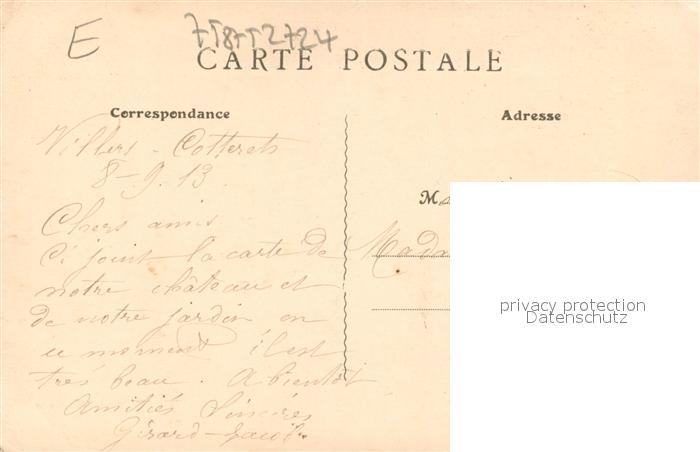 E
CARTE POSTALE
Correspondance
Adresse
Villers-Cotterets
8-9.13.
Chers amis
Ci joint la carte de
notre château et
de notre jardin en
ce moment il est
très beau. A bientôt
Amitiés Sincères
Girard-Jacob
M
Mada
privacy protection
Datenschutz